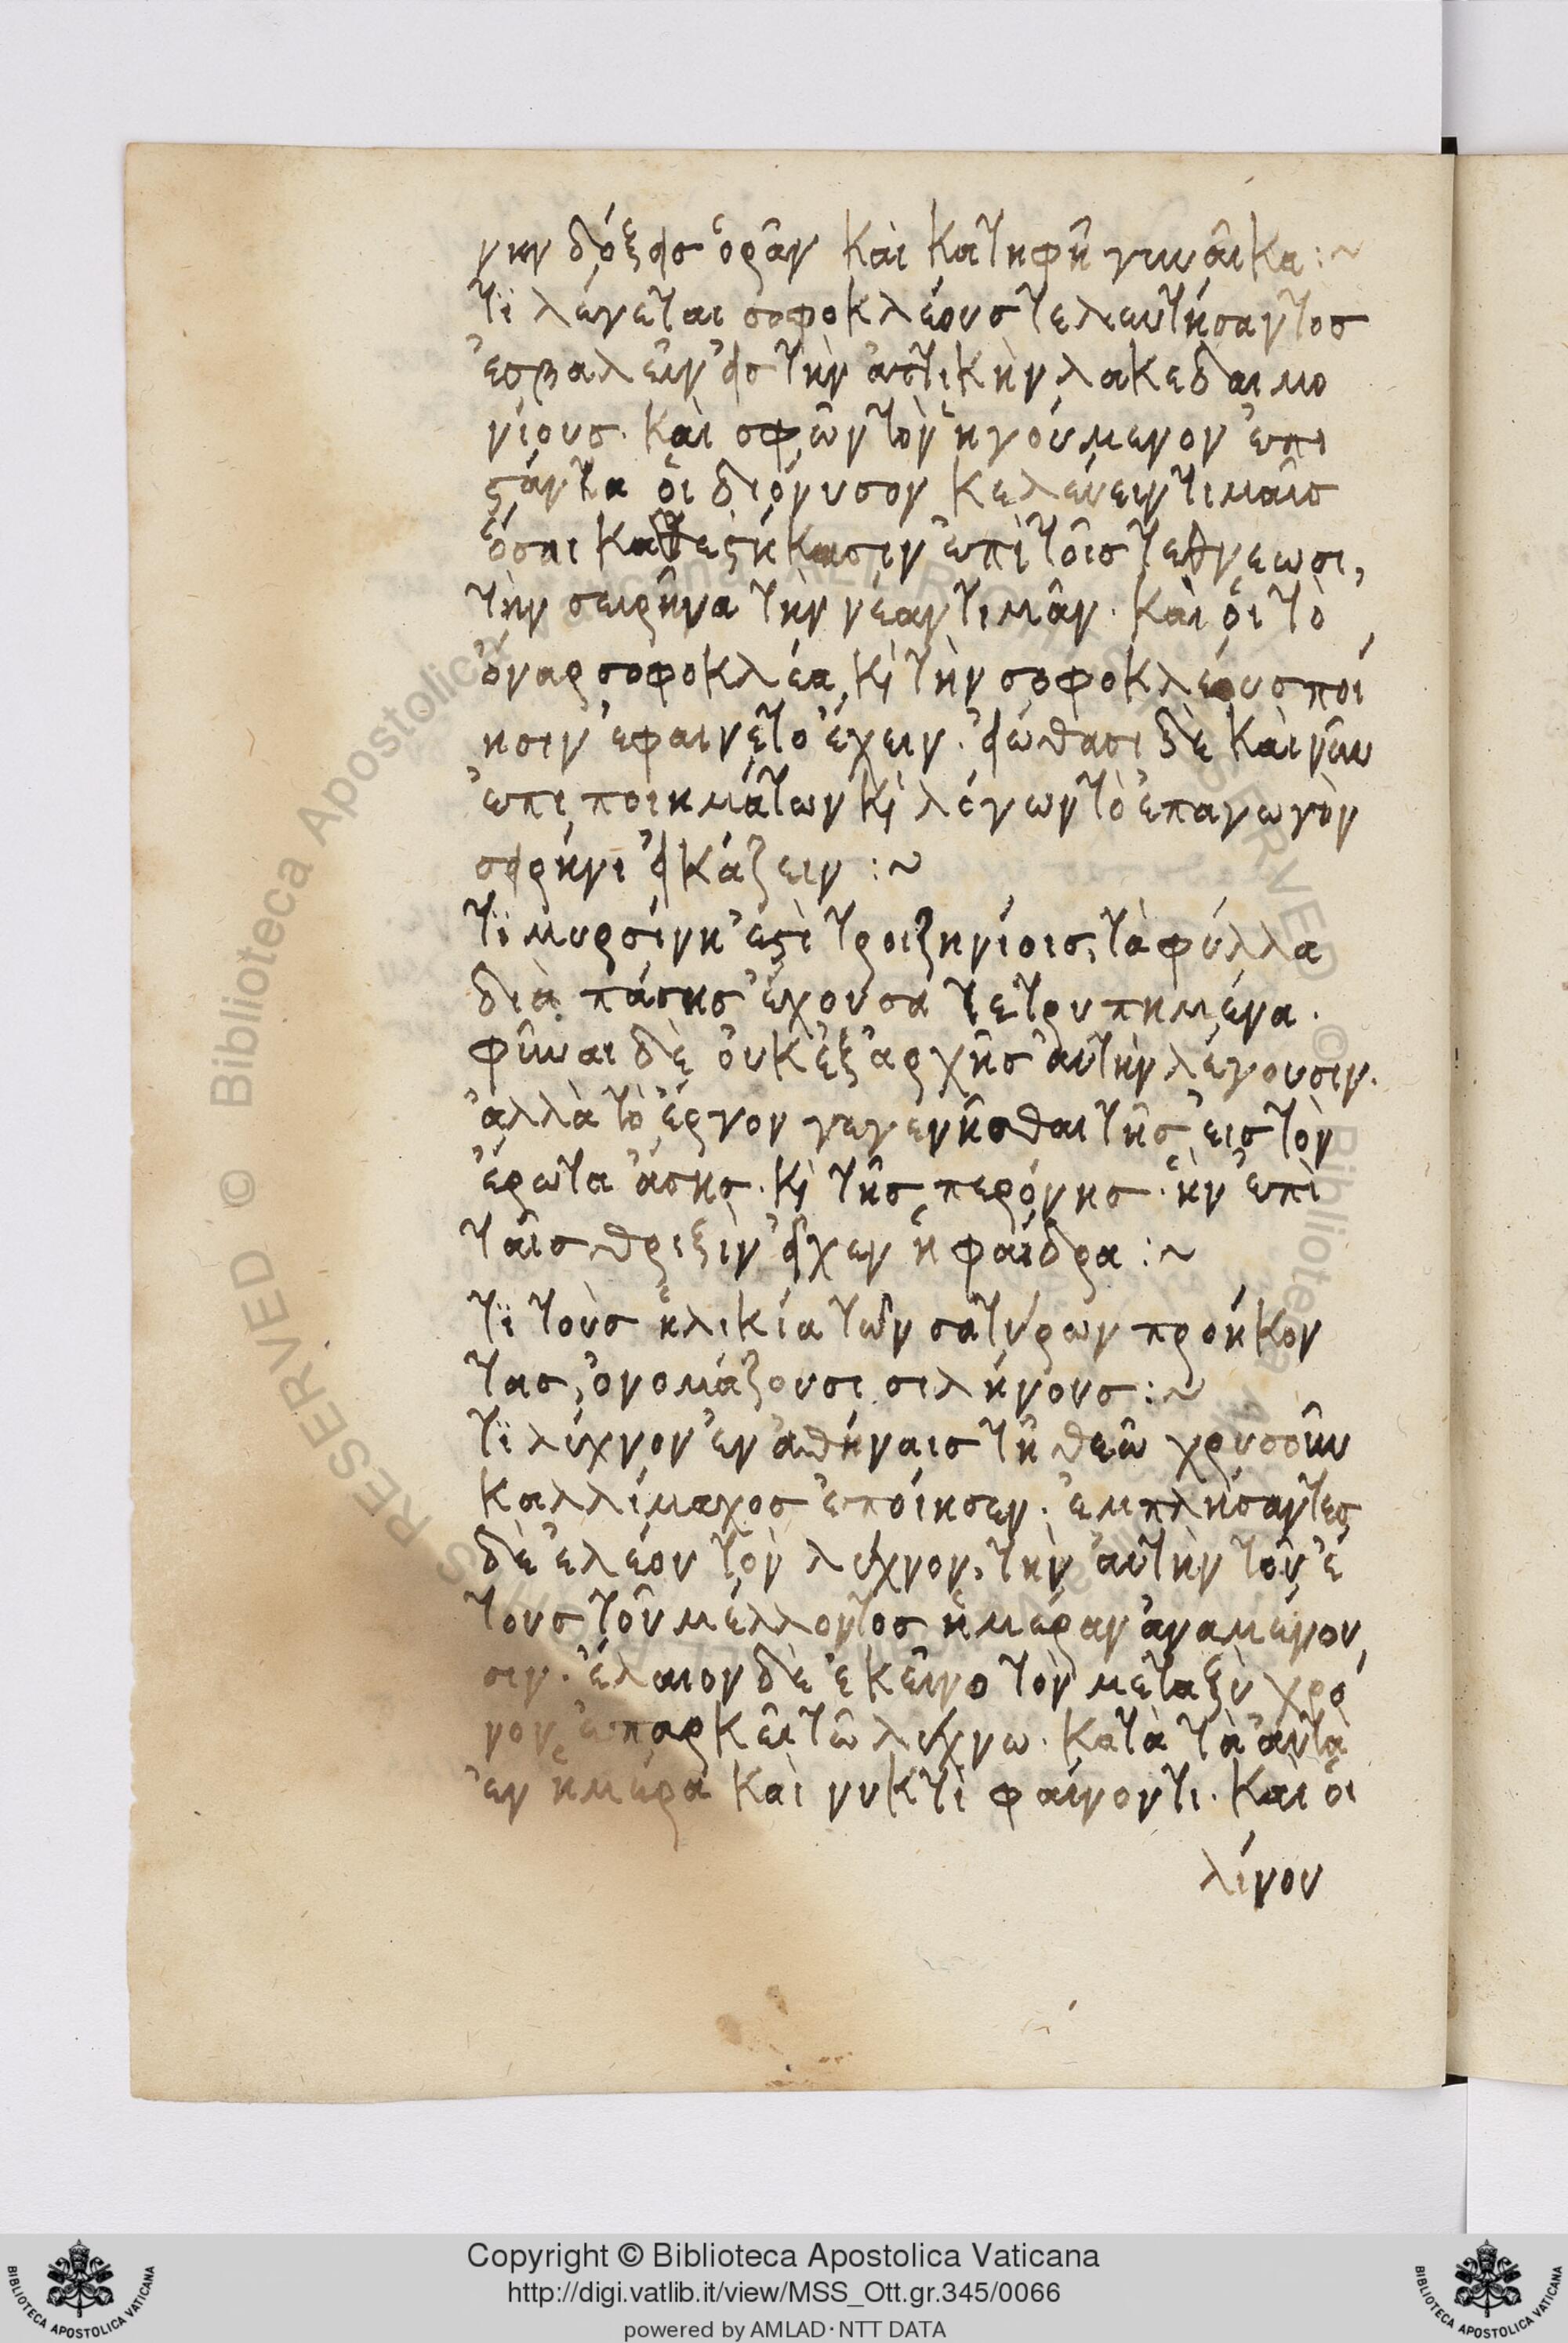 νην δόξεις ὁρᾶν καὶ κατηφῆ γυναῖκα :~
τί λέγεται σοφοκλέους τελευτήσαντος
ἐσβαλεῖν εἰς τὴν ἀττικὴν λακεδαιμο
νίους. καὶ σφῶν τὸν ἡγούμενον ἐπι
στάντα οἱ διόνυσον κελεύειν τιμαῖς
ὅσαι καθεστήκασιν ἐπὶ τοῖς τεθνεωσι,
τὴν σειρῆνα τὴν νέαν τιμᾶν. καὶ οἱ τὸ
ὄναρ σοφοκλέα καὶ τὴν σοφοκλέους ποί
ησιν ἐφαινετο ἔχειν. εἰώθασι δὲ καὶ νῦν
ἐπι ποιημάτων καὶ λόγων τὸ ἐπαγωγὸν
σειρήνι εἰκάζειν :~
τί μυρσίνη ἐστὶ τροιζηνίοις, τὰ φύλλα
διὰ πάσης ἔχουσα τετρυπημένα.
φῦναι δὲ οὐκ ἐξ ἀρχῆς αὐτὴν λέγουσιν.
ἀλλὰ τὸ ἔργον γεγενῆσθαι τῆς εἰς τὸν
ἔρωτα ἄσης. καὶ τῆς περόνης. ἣν ἐπὶ
ταῖς θριξὶν εἶχεν ἡ φαίδρα :~
τί τοὺς ἡλικία τῶν σατύρων προήκον
τας, ὀνομάζουσι σιλήνους :~
τί λύχνον ἐν ἀθήναις τῆ θεῶ χρυσοῦν
καλλίμαχος ἐποίησεν. ἐμπλήσαντες
δὲ ἐλέου τὸν λύχνον, τὴν αὐτὴν τοῦ ἔ
τους τοῦ μέλλοντος ἡμέραν ἀναμένου
σιν. ἔλαιον δὲ ἐκεῖνο τὸν μεταξὺ χρό
νον ἐπαρκεῖ τῶ λύχνω. κατὰ τὰ αὐτὰ
ἐν ἡμέρα καὶ νυκτὶ φαίνοντι. καὶ οἱ
λίνου
Copyright © Biblioteca Apostolica Vaticana
http://digi.vatlib.it/view/MSS_Ott.gr.345/0066
powered by AMLAD·NTT DATA